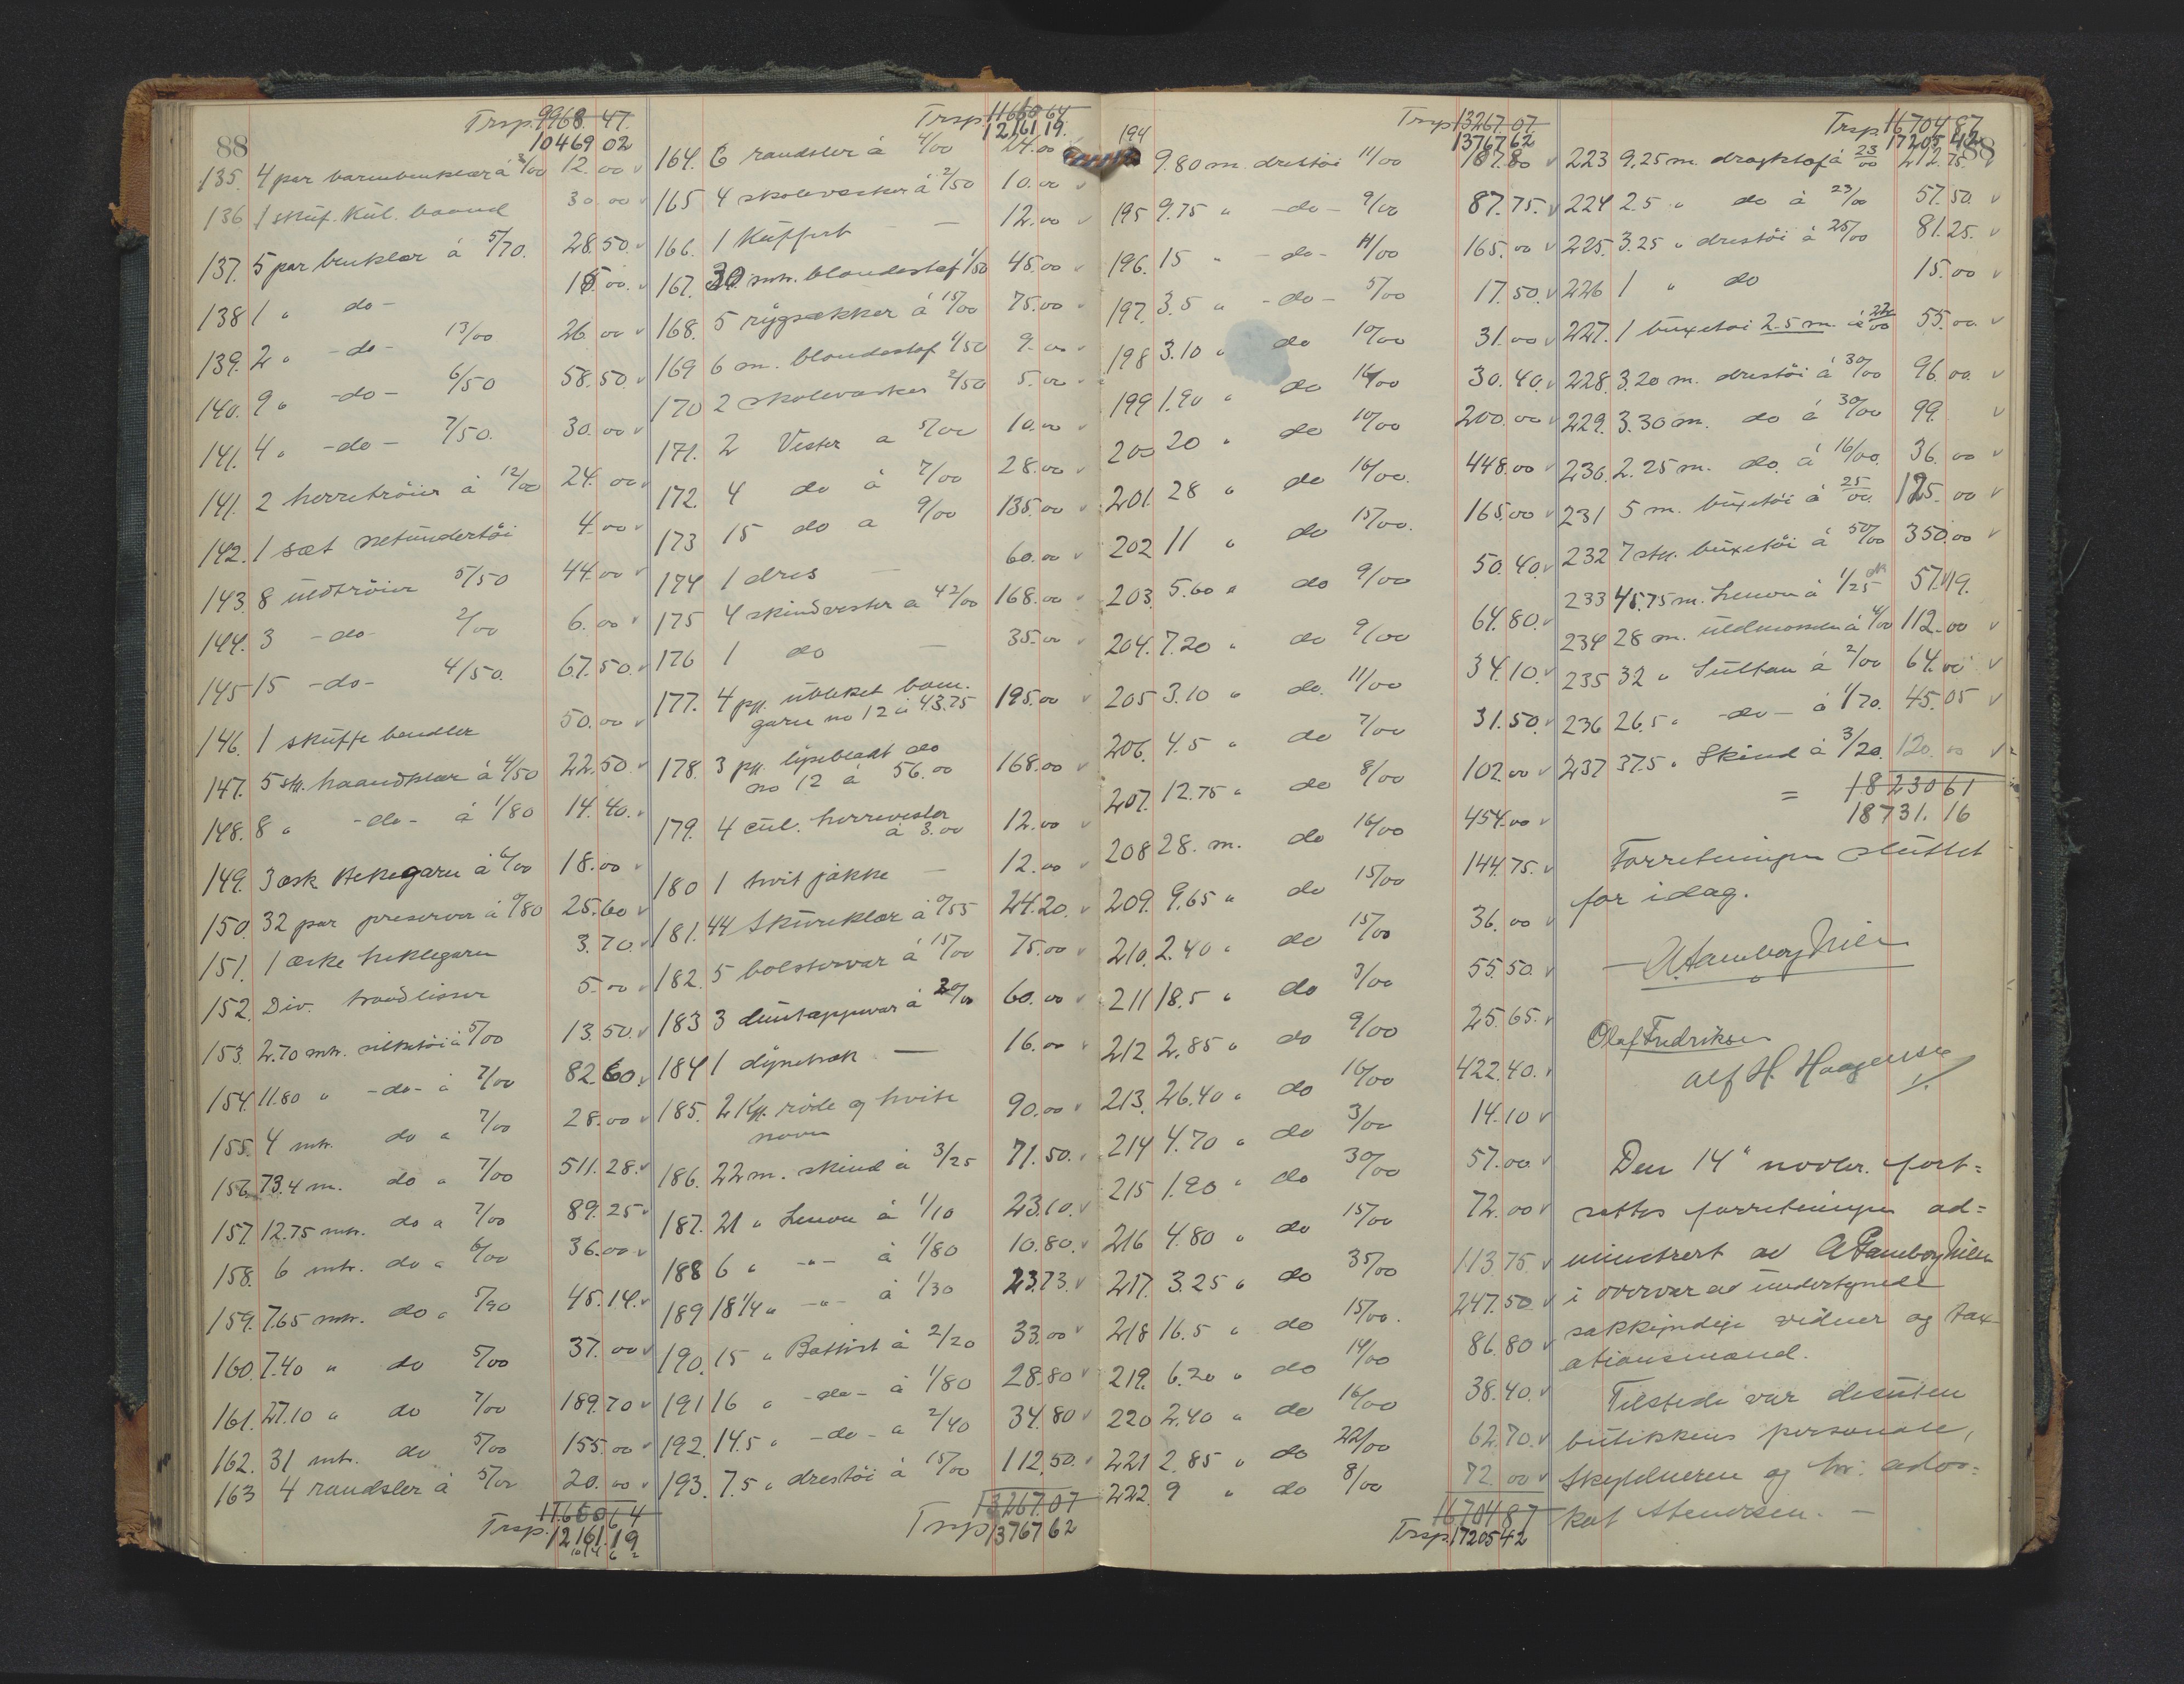 88
Trsp. 9968.47.
10469 02
135. 4 par barnebenklær á 3/00 12.00
136 1 skuf. kul. baand 30.00
137. 5 par benklær á 5/70. 28.50.
138 1 " do - 15.00.
139. 2 " - do - 13/00 26.00
140. 9 " - do - 6/50 58.50.
141. 4 " - do - 7/50. 30.00
141. 2 herretröier á 12/00 24.00
142. 1 sæt netundertöi 4.00
143. 8 uldtröier 5/50 44.00
144. 3 - do - 2/00 6.00
145 15 - do - 4/50. 67.50.
146. 1 skuffe bendler 50.00
147. 5 stk. haandklær á 4/50 22.50
148. 8 " - do - á 1/80 14.40.
149. 3 æsk Heklegarn á 6/00 18.00
150. 32 par preserver á 0/80 25.60
151. 1 æske heklegarn 3.70.
152. Div. traadlisser 5.00
153. 2.70 mtr. silketöi á 5/00 13.50.
154. 11.80 " - do - á 7/00 82.60.
155. 4 mtr. do a 7/00 28.00
156. 73.4 m. do " 7/00 511.28.
157. 12.75 mtr. do a 7/00 89.25
158. 6 mtr. do a 6/00 36.00
159. 7.65 mtr. do " 5/90 45.14.
160. 7.40 " do 5/00 37.00
161. 27.10 " do 7/00 189.70
162. 31 mtr. do 5/00 155.00
163 4 randsler á 5/00 20.00
11660 64
Trsp. 12161.19
Trsp. 11660 64
12161 19.
164. 6 randsler á 4/00 24.00
165 4 skolevesker á 2/50 10.00
166. 1 Kuffert - 12.00
167. 30 mtr. blondestof 1/50 45.00
168. 5 rygsækker á 15/00 75.00
169 6 m. blondestof 1/50 9.00
170 2 skolevesker 2/50 5.00
171. 2 Vester a 5/00 10.00
172. 4 do á 7/00 28.00
173 15 do a 9/00 135.00
174 1 dres - 60.00
175 4 skindvester a 42/00 168.00
176 1 do - 35.00
177. 4 pk. ubleket bom.
garn no 12 á 43.75 195.00
178. 3 pk. lyseblaat do
no 12 á 56.00 168.00
179. 4 cul. herrevester
á 3.00 12.00
180 1 hvit jakke - 12.00
181. 44 Skureklær á 0/55 24.20.
182. 5 bolstervar á 15/00 75.00
183 3 duntæppevar á 20/00 60.00
184 1 dynetræk - 16.00
185. 2 Kpl. röde og hvite
nover 90.00
186. 22 m. skind á 3/25 71.50.
187. 21 " Lenon á 1/10 23.10.
188 6 " - " - á 1/80 10.80.
189 18 1/4 " - " - á 1/30 23.73.
190. 15 " Battist á 2/20 33.00
191 16 " - do - á 1/80 28.80
192. 14.5 " - do - a 2/40 34.80
193. 7.5 " drestöi á 15/00 112.50.
13267.07
Trsp 13767 62
Trsp 13267.07
13767 62
194 9.80 m. drestöi 11/00 107.80
195 9.75 " - do - 9/00 87.75.
196. 15 " - do - 11/00 165.00
197. 3.5 " - do - 5/00 17.50.
198 3.10 " do 10/00 31.00
199 1.90 " do 16/00 30.40.
200 20 " do 10/00 200.00
201. 28 " do 16/00. 448.00
202 11 " do 15/00. 165.00
203. 5.60 " do 9/00 50.40.
204. 7.20 " do 9/00 64.80.
205 3.10 " do. 11/00 34.10.
206. 4.5 " do 7/00 31.50.
207. 12.75 " do 8/00 102.00
208 28. m. do 16/00 454.00
209. 9.65 " do 15/00 144.75.
210. 2.40 " do 15/00 36.00
211 18.5 " do 3/00 55.50.
212 2.85 " do 9/00 25.65.
213. 26.40 " do 16/00 422.40.
214 4.70 " do 3/00 14.10
215 1.90 " do 30/00 57.00.
216 4.80 " do 15/00 72.00
217. 3.25 " do 35/00 113.75.
218 16.5 " do 15/00. 247.50
219. 6.20 " do 14/00 86.80
220 2.40 " do 16/00 38.40.
221 2.85 " do 22/00 62.70.
222. 9 " do 8/00 72.00
16704 87
Trsp. 17205 42
Trsp. 16704 87
17205.42
88
223 9,25 m. dragtstof á 23/00 212.75.
224 2.5 " do á 23/00 57.50.
225. 3.25 " drestöi á 25/00 81.25.
226 1 " do 15.00
227. 1 buxetöi 2.5 m. á 22/00 55.00
228. 3.20 m. drestöi á 30/00 96.00.
229. 3.30 m. do á 30/00 99.
230. 2.25 m. do. á 16/00. 36.00
231 5 m. buxetöi á 25/00. 125.00
232 7 stk. buxetöi á 50/00 350.00
233 45.75 m. Lenon á 1/25 57.19.
234 28 m. uldmosselin á 4/00 112.00
235 32 " Sultan á 2/00 64.00
236 26.5 " - do - á 1/70. 45.05
237 37.5 " Skind á 3/20. 120.00
= 18230 61
18731.16
Forretningen sluttet
for idag.
Olaf Fredriksen
Alf H. Haagensen
Den 14" novbr. fort=
sattes forretningen ad=
ministrert av
i overvær av undertegnede
sakkyndige vidner og tax-
ationsmænd.
Tilstede var desuten
butikkens personale,
Skyldneren og hr. advo=
kat Stenersen. -